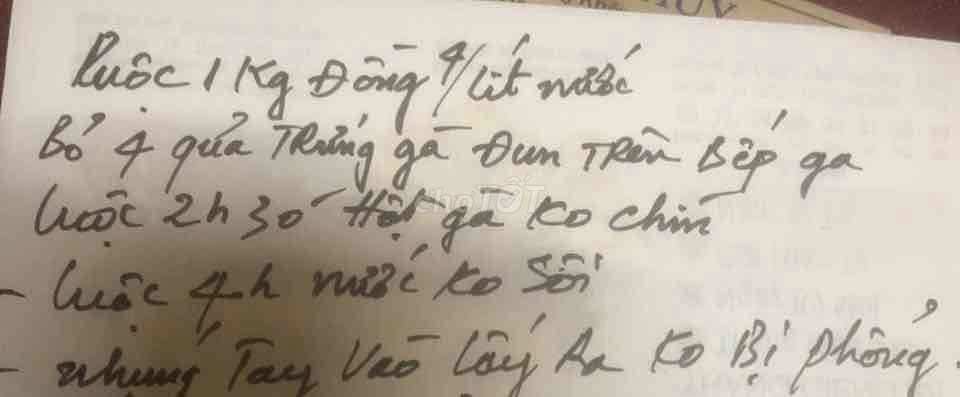 Luộc 1 Kg Đồng 4/lít nước
Bỏ 4 qủa Trứng gà Đun Trên Bếp ga
luộc 2h30' Hột gà Ko chín
chợTỐT
- luộc 4h nước Ko Sôi
- nhúng Tay Vào lấy Ra Ko Bị phỏng.